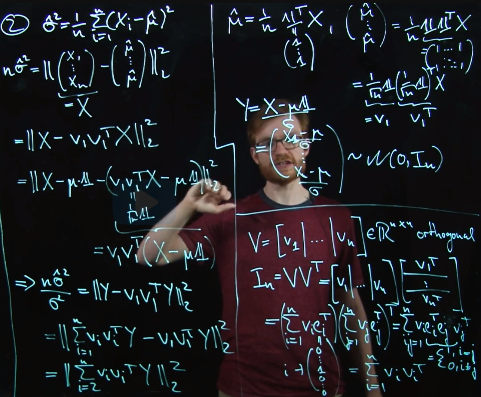 ② σ̂² = 1/n Σ_{i=1}^n (X_i - μ̂)²
nσ̂² = ‖ (X_1 ⋮ X_n) - (μ̂ ⋮ μ̂) ‖₂²
= X
= ‖ X - v₁v₁ᵀX ‖₂²
= ‖ X - μ𝟙 - (v₁v₁ᵀX - μ𝟙) ‖₂²
= v₁v₁ᵀ (X - μ𝟙)
⇒ nσ̂²/σ² = ‖ Y - v₁v₁ᵀY ‖₂²
= ‖ Σ_{i=1}^n v_i v_iᵀ Y - v₁v₁ᵀ Y ‖₂²
= ‖ Σ_{i=2}^n v_i v_iᵀ Y ‖₂²
μ̂ = 1/n 𝟙ᵀX, (μ̂ ⋮ μ̂) = 1/n 𝟙𝟙ᵀX
(1 ⋮ 1)
= (1 ⋯ 1 ⋮ 1 ⋯ 1)
= 1/√n 𝟙 (1/√n 𝟙)ᵀ X
= v₁ v₁ᵀ
Y = (X - μ𝟙)/σ
= ((X₁ - μ)/σ ⋮ (X_n - μ)/σ) ~ 𝒩(0, I_n)
V = [v₁ | … | v_n] ∈ ℝ^{n×n} orthogonal
I_n = VVᵀ = [v₁ | … | v_n] [v₁ᵀ ⋮ v_nᵀ]
= (Σ_{i=1}^n v_i e_iᵀ)(Σ_{j=1}^n v_j e_jᵀ)ᵀ = Σ v_i e_iᵀ e_j v_jᵀ
= {1, i=j
0, i≠j
i → (0 ⋮ 1 ⋮ 0) = Σ_{i=1}^n v_i v_iᵀ